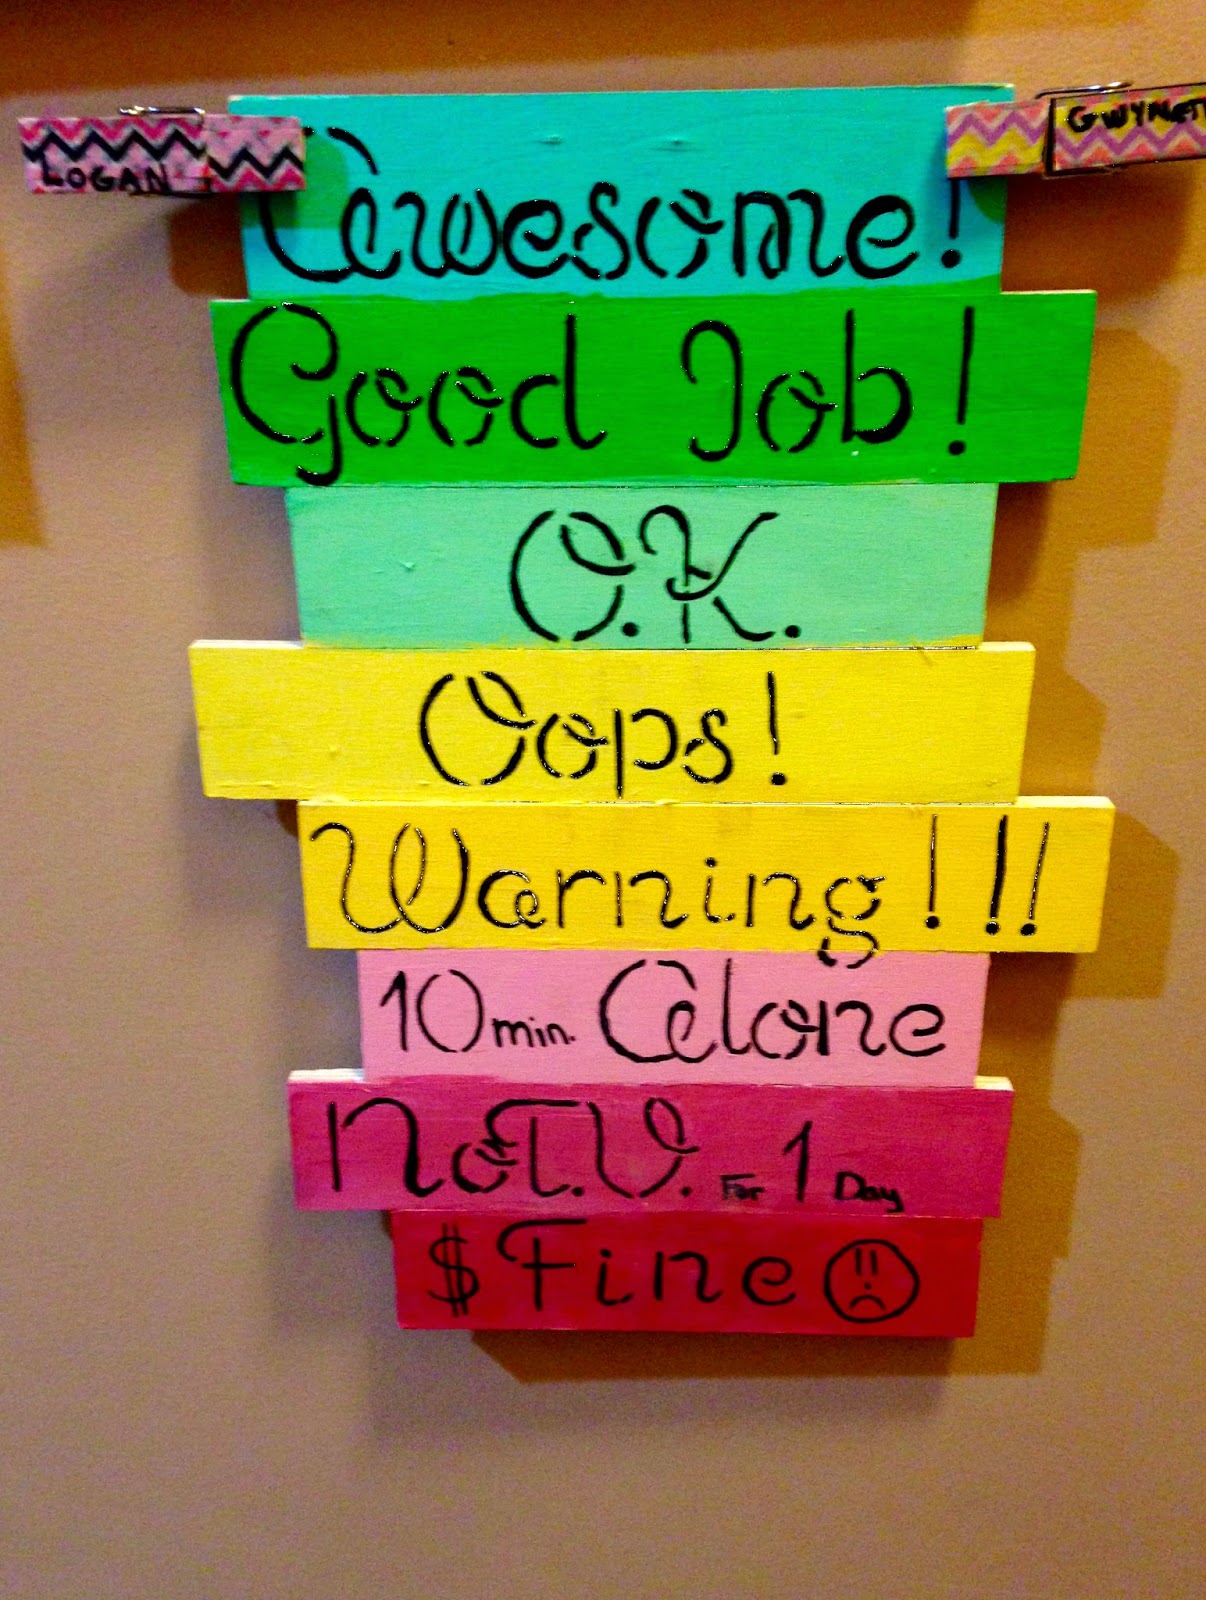 LOGAN
GWYNET
Awesome!
Good Job!
O.K.
Oops!
Warning!!!
10 min. Alone
No T.V. For 1 Day
$ Fine